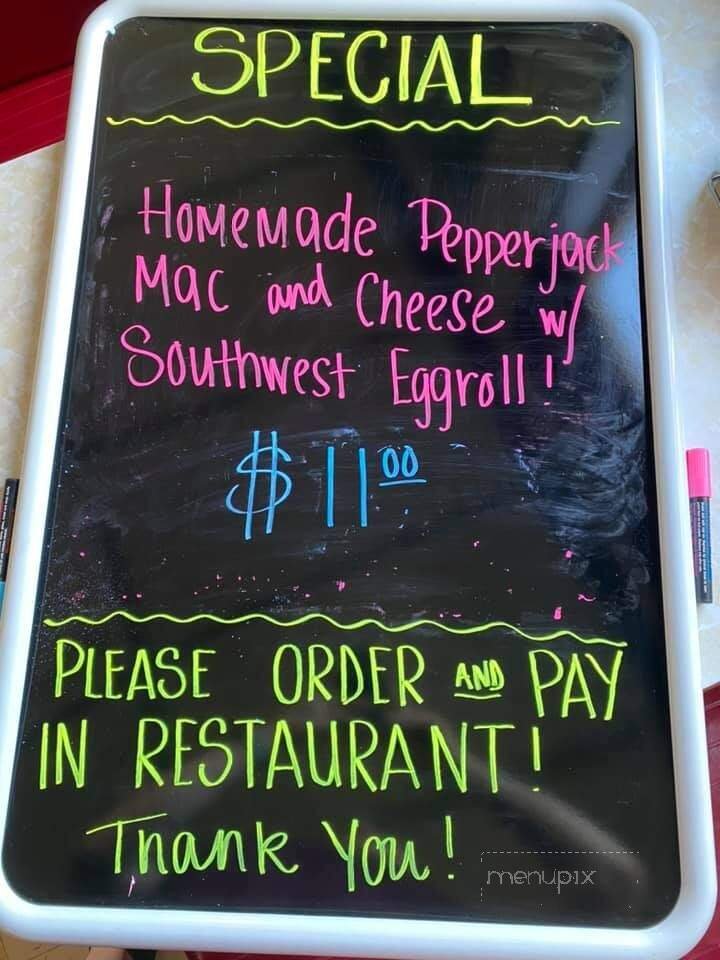 SPECIAL
Homemade Pepperjack
Mac and Cheese w/
Southwest Eggroll!
$11.00
PLEASE ORDER AND PAY
IN RESTAURANT!
Thank You!
menupix